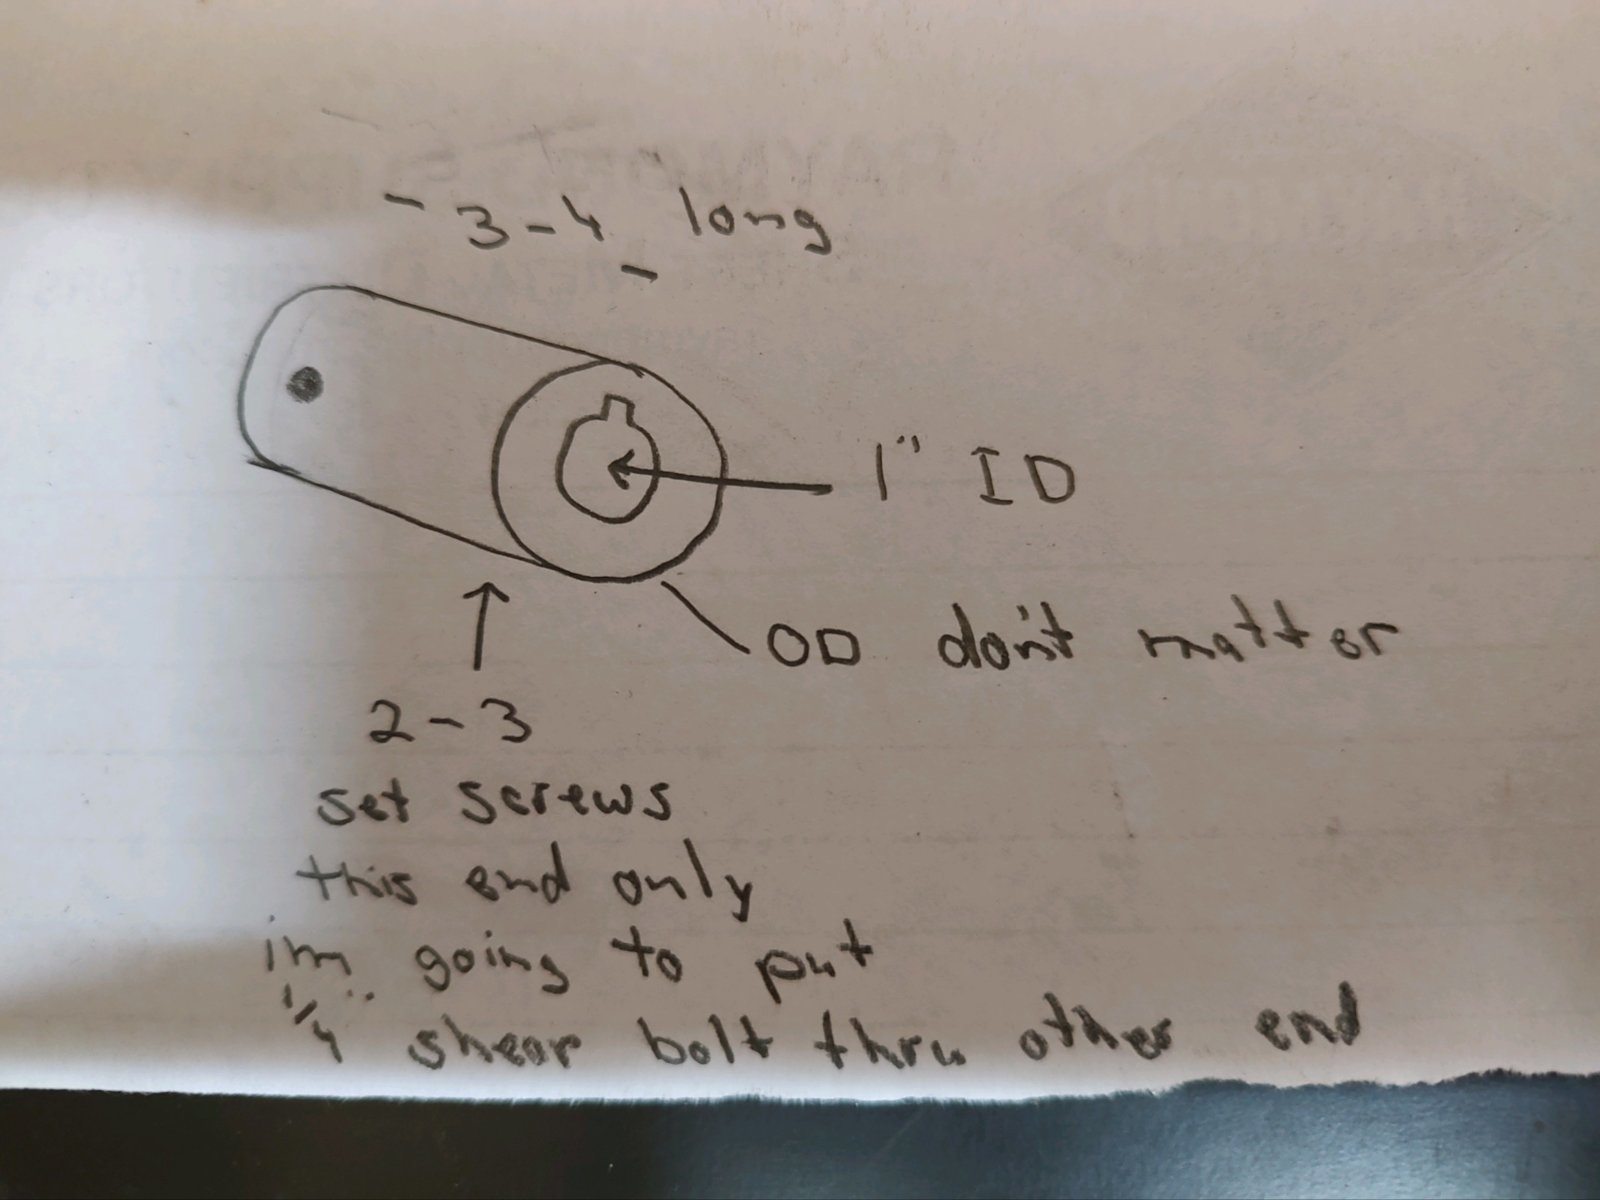 3-4 long
1" ID
OD don't matter
2-3
set screws
this end only
im going to put
1/4" shear bolt thru other end